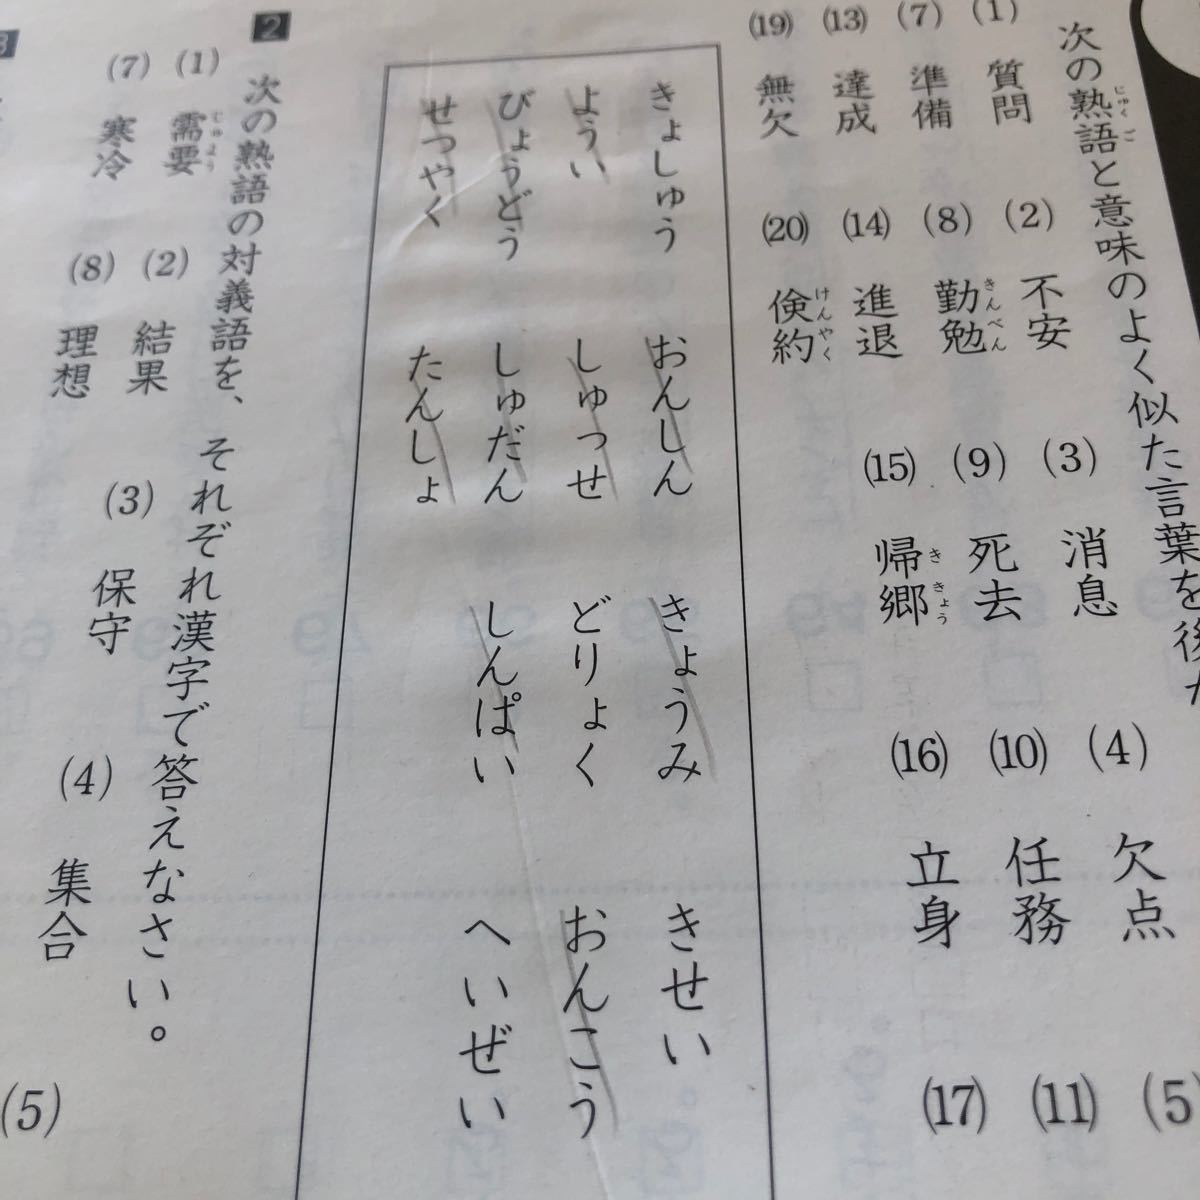 次の熟語と意味のよく似た言葉を後
じゅくご
(1) 質問 (2) 不安 (3) 消息 (4) 欠点 (5
(7) 準備 (8) 勤勉 (9) 死去 (10) 任務 (11)
きんべん
(13) 達成 (14) 進退 (15) 帰郷 (16) 立身 (17)
ききょう
(19) 無欠 (20) 倹約
けんやく
きょしゅう おんしん きょうみ きせい
ようい しゅっせ どりょく おんこう
びょうどう しゅだん しんぱい へいぜい
せつやく たんしょ
2 次の熟語の対義語を、それぞれ漢字で答えなさい。
(1) 需要 (2) 結果 (3) 保守 (4) 集合 (5)
じゅよう
(7) 寒冷 (8) 理想
3